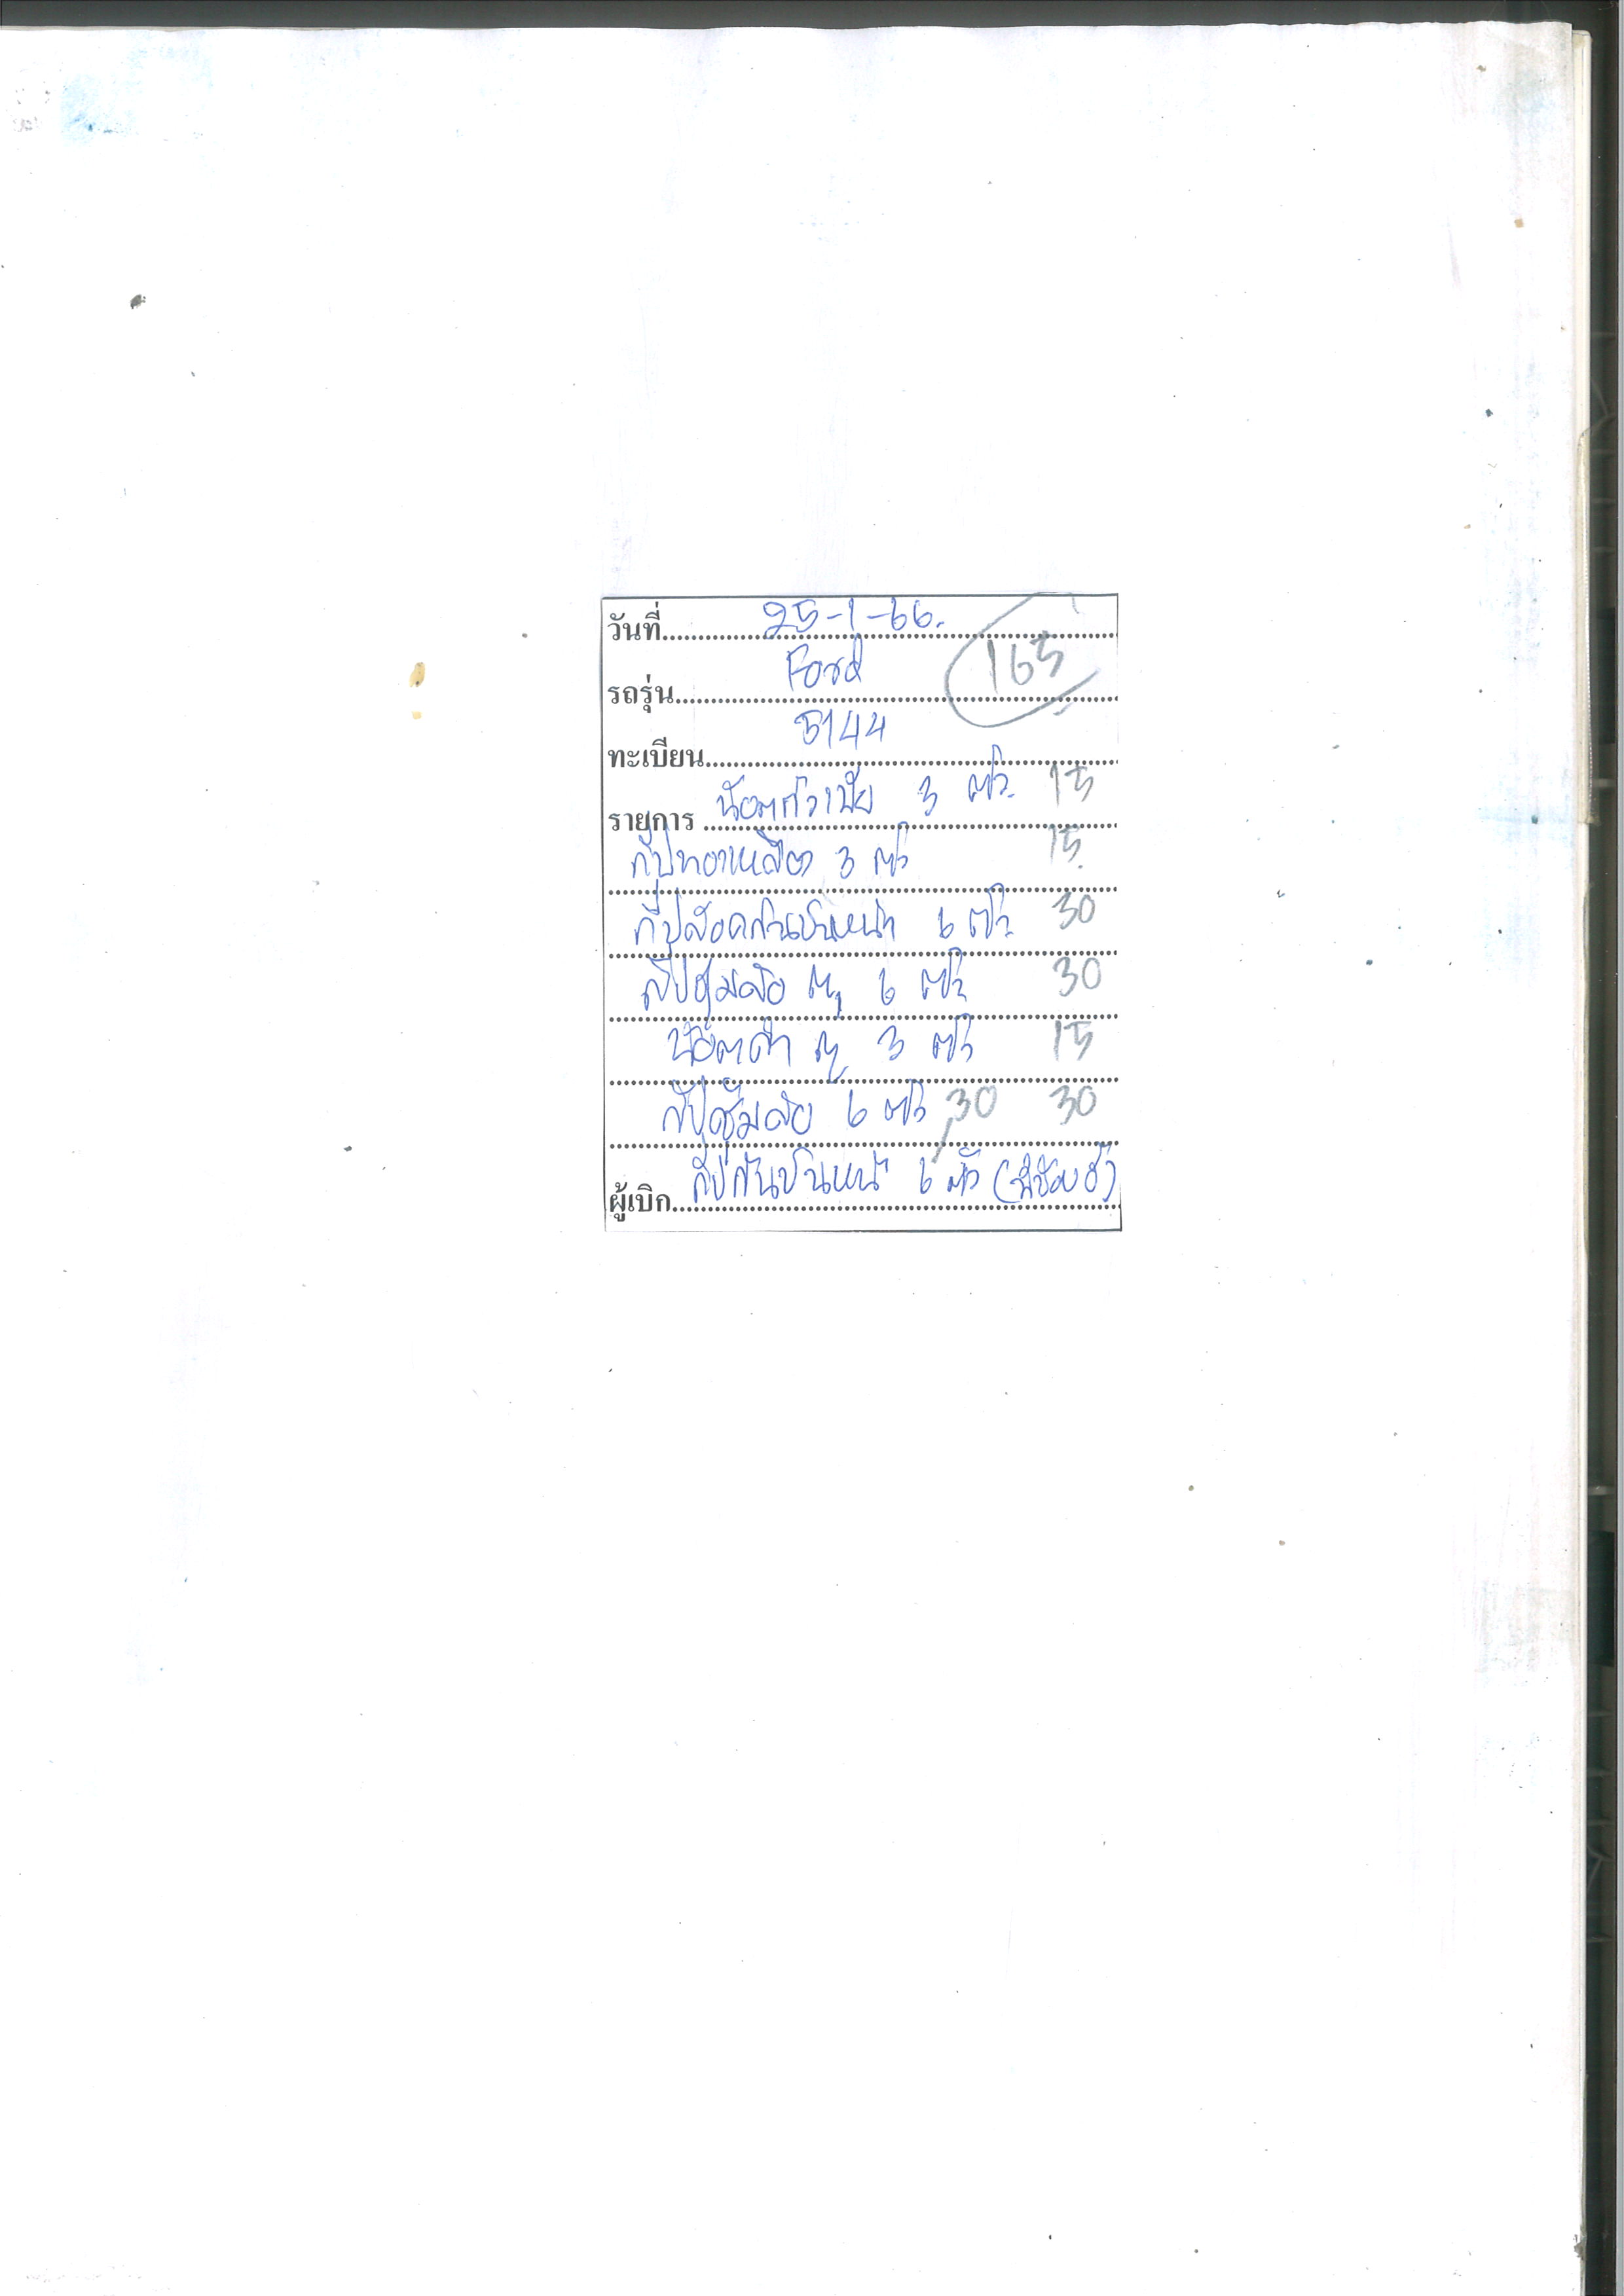 วันที่ 25-1-66.
รถรุ่น Ford 165
ทะเบียน 5144
รายการ น๊อตหัวเปีย 3 ตัว 15
กิ๊ป 3 ตัว 15
กิ๊ปล๊อคกันชนหน้า 6 ตัว 30
กิ๊ปซุ้มล้อ 6 ตัว 30
น๊อตดำ 3 ตัว 15
กิ๊ปซุ้มล้อ 6 ตัว 30 30
ผู้เบิก กิ๊ปกันชนหน้า 6 ตัว